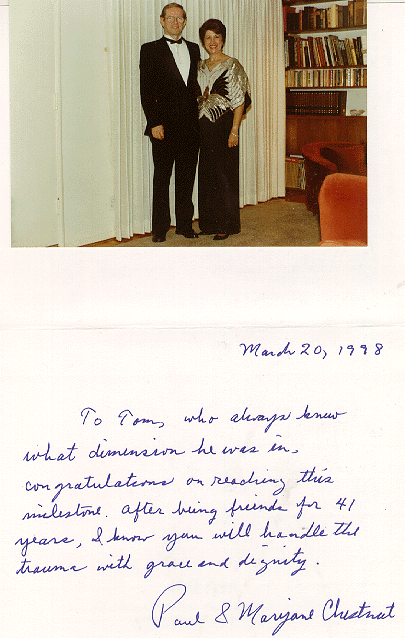 March 20, 1998
To Tom, who always knew
what dimension he was in,
congratulations on reaching this
milestone. After being friends for 41
years, I know you will handle the
trauma with grace and dignity.
Paul & Marijane Chestnut